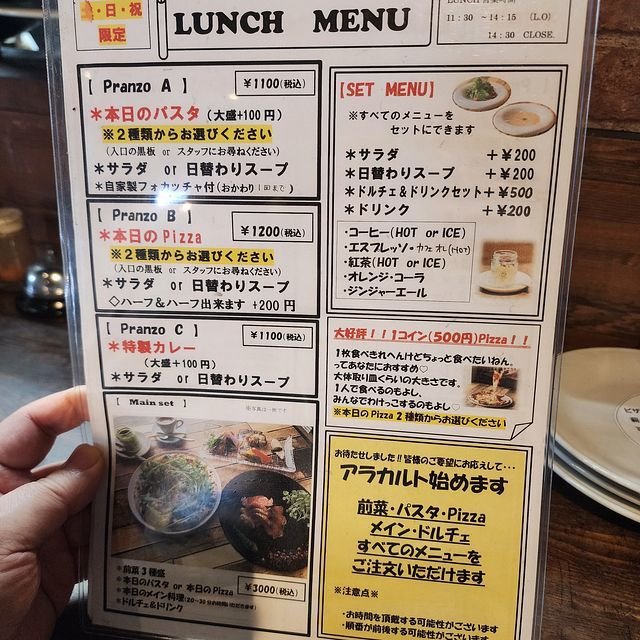 ・日・祝
限定
LUNCH MENU
11:30 ~14:15 (L.O)
14:30 CLOSE.
【 Pranzo A 】
¥1100(税込)
*本日のパスタ (大盛+100円)
※2種類からお選びください
(入口の黒板 or スタッフにお尋ねください)
*サラダ or 日替わりスープ
*自家製フォカッチャ付(おかわり1回まで)
【 Pranzo B 】
¥1200(税込)
*本日のPizza
※2種類からお選びください
(入口の黒板 or スタッフにお尋ねください)
*サラダ or 日替わりスープ
◇ハーフ&ハーフ出来ます +200円
【 Pranzo C 】
¥1100(税込)
*特製カレー
(大盛+100円)
*サラダ or 日替わりスープ
【 Main set 】
*前菜3種盛
*本日のパスタ or 本日のPizza
*本日のメイン料理
*ドルチェ&ドリンク
¥3000(税込)
[SET MENU]
※すべてのメニューを
セットにできます
*サラダ +¥200
*日替わりスープ +¥200
*ドルチェ&ドリンクセット+¥500
*ドリンク +¥200
・コーヒー(HOT or ICE)
・エスプレッソ・カフェオレ(HOT)
・紅茶(HOT or ICE)
・オレンジ・コーラ
・ジンジャーエール
大好評!!1コイン(500円)Pizza!!
1枚食べきれへんけどちょっと食べたいねん。
ってあなたにおすすめ♡
大体取り皿くらいの大きさです。
1人で食べるのもよし、
みんなでわけっこするのもよし♡
※本日のPizza2種類からお選びください
お待たせしました!!皆様のご要望にお応えして・・・
アラカルト始めます
前菜・パスタ・Pizza
メイン・ドルチェ
すべてのメニューを
ご注文いただけます
※注意点※
・お時間を頂戴する可能性がございます
・順番が前後する可能性がございます